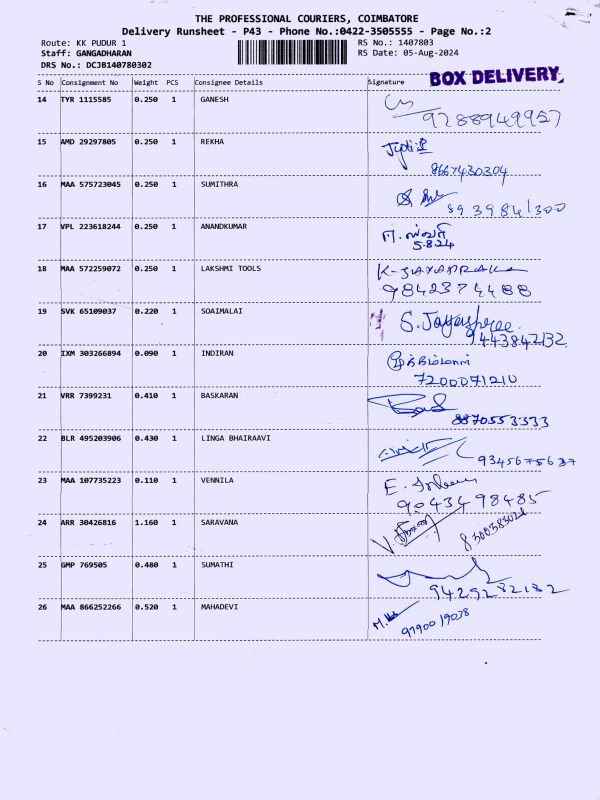 THE PROFESSIONAL COURIERS, COIMBATORE
Delivery Runsheet - P43 - Phone No.:0422-3505555 - Page No.:2
Route: KK PUDUR 1 RS No.: 1407803
Staff: GANGADHARAN RS Date: 05-Aug-2024
DRS No.: DCJB140780302 BOX DELIVERY
S No Consignment No Weight PCS Consignee Details Signature
14 TYR 1115585 0.250 1 GANESH
9788949957
15 AMD 29297805 0.250 1 REKHA
8667430304
16 MAA 575723045 0.250 1 SUMITHRA
8939841300
17 VPL 223618244 0.250 1 ANANDKUMAR
5.8.24
18 MAA 572259072 0.250 1 LAKSHMI TOOLS
9842374488
19 SVK 65109037 0.220 1 SOAIMALAI S. Jayashree
9443842132
20 IXM 303266894 0.090 1 INDIRAN
7200071210
21 VRR 7399231 0.410 1 BASKARAN
8870553333
22 BLR 495203906 0.430 1 LINGA BHAIRAAVI
9345675637
23 MAA 107735223 0.110 1 VENNILA
9043498485
24 ARR 30426816 1.160 1 SARAVANA
25 GMP 769505 0.480 1 SUMATHI
9429282182
26 MAA 866252266 0.520 1 MAHADEVI
9790019038